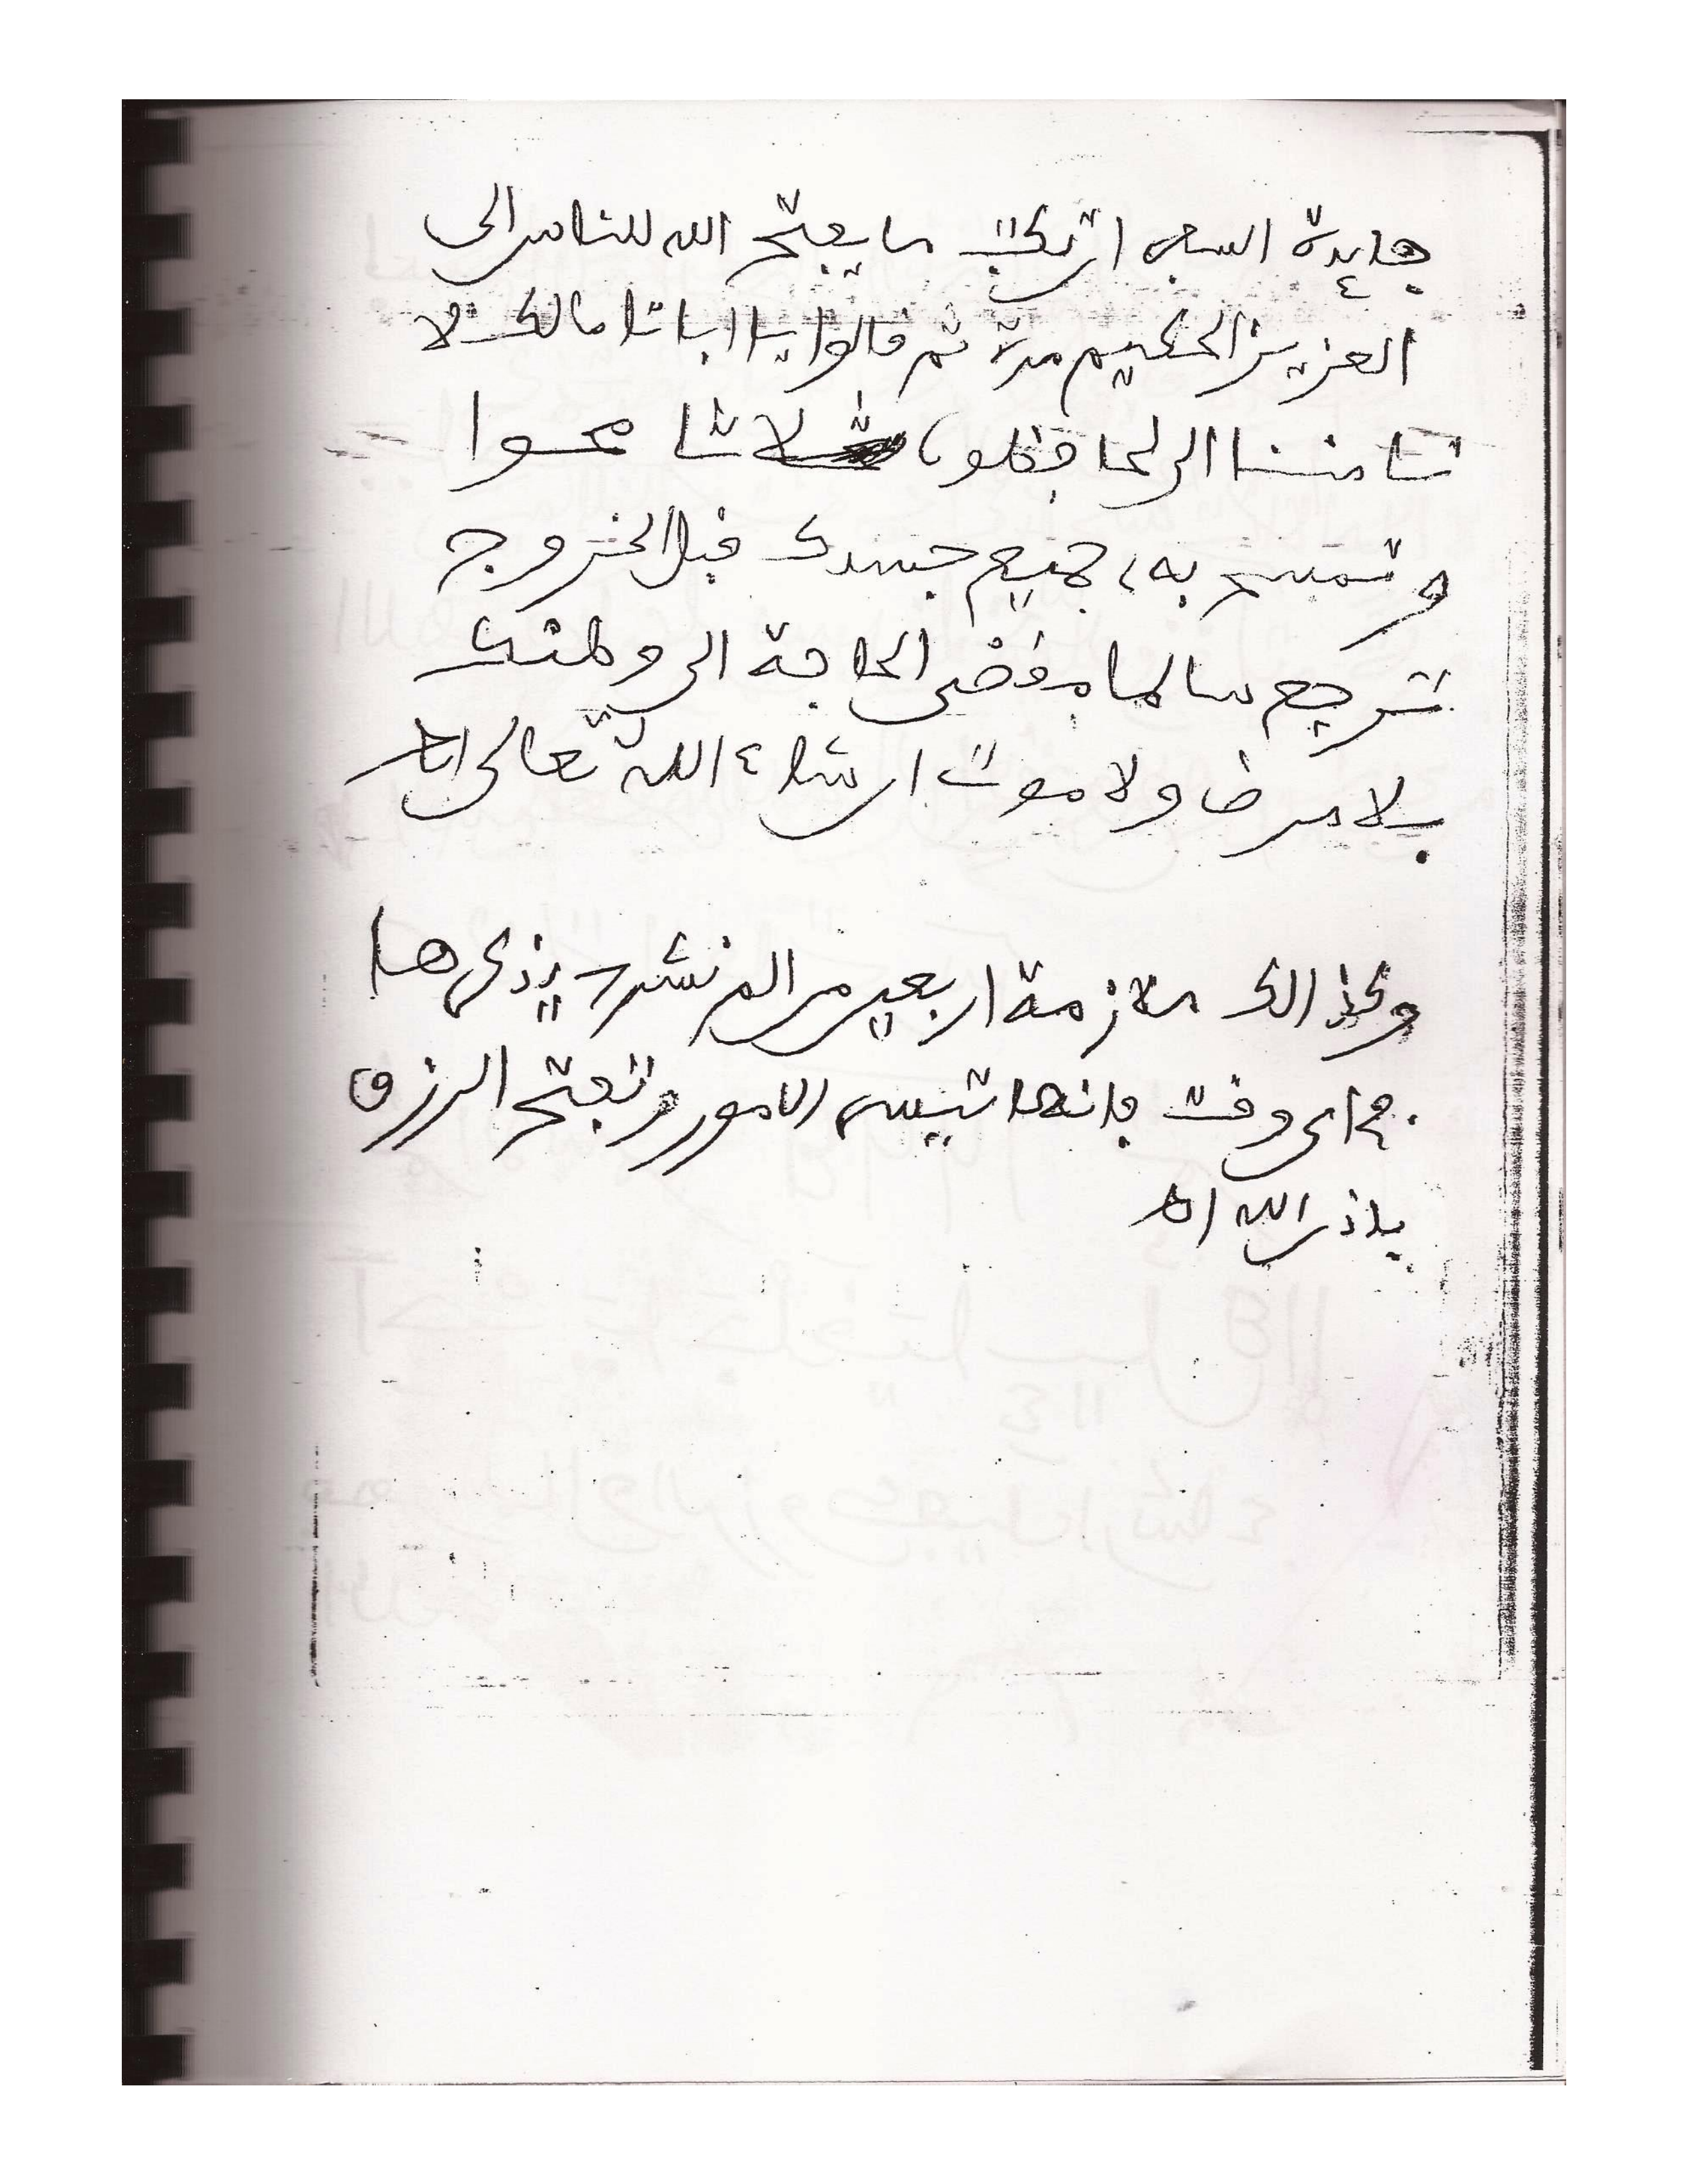 فايدة السفر ان تكتب ما يفتح الله للناس الى
العزيز الحكيم مرة ثم قالوا يا ابانا ما لك لا
تامننا الى لحافظون ثلاثا محوا
وتمسح به جميع جسدك قبل الخروج
ترجع سالما مقضى الحاجة الى وطنك
بلا مرض ولا موت ان شاء الله تعالى اه
وكذالك ملازمة اربعين من الم نشرح يذكرها
في اى وقت فانها تيسر الامور وتفتح الرزق
باذن الله اه